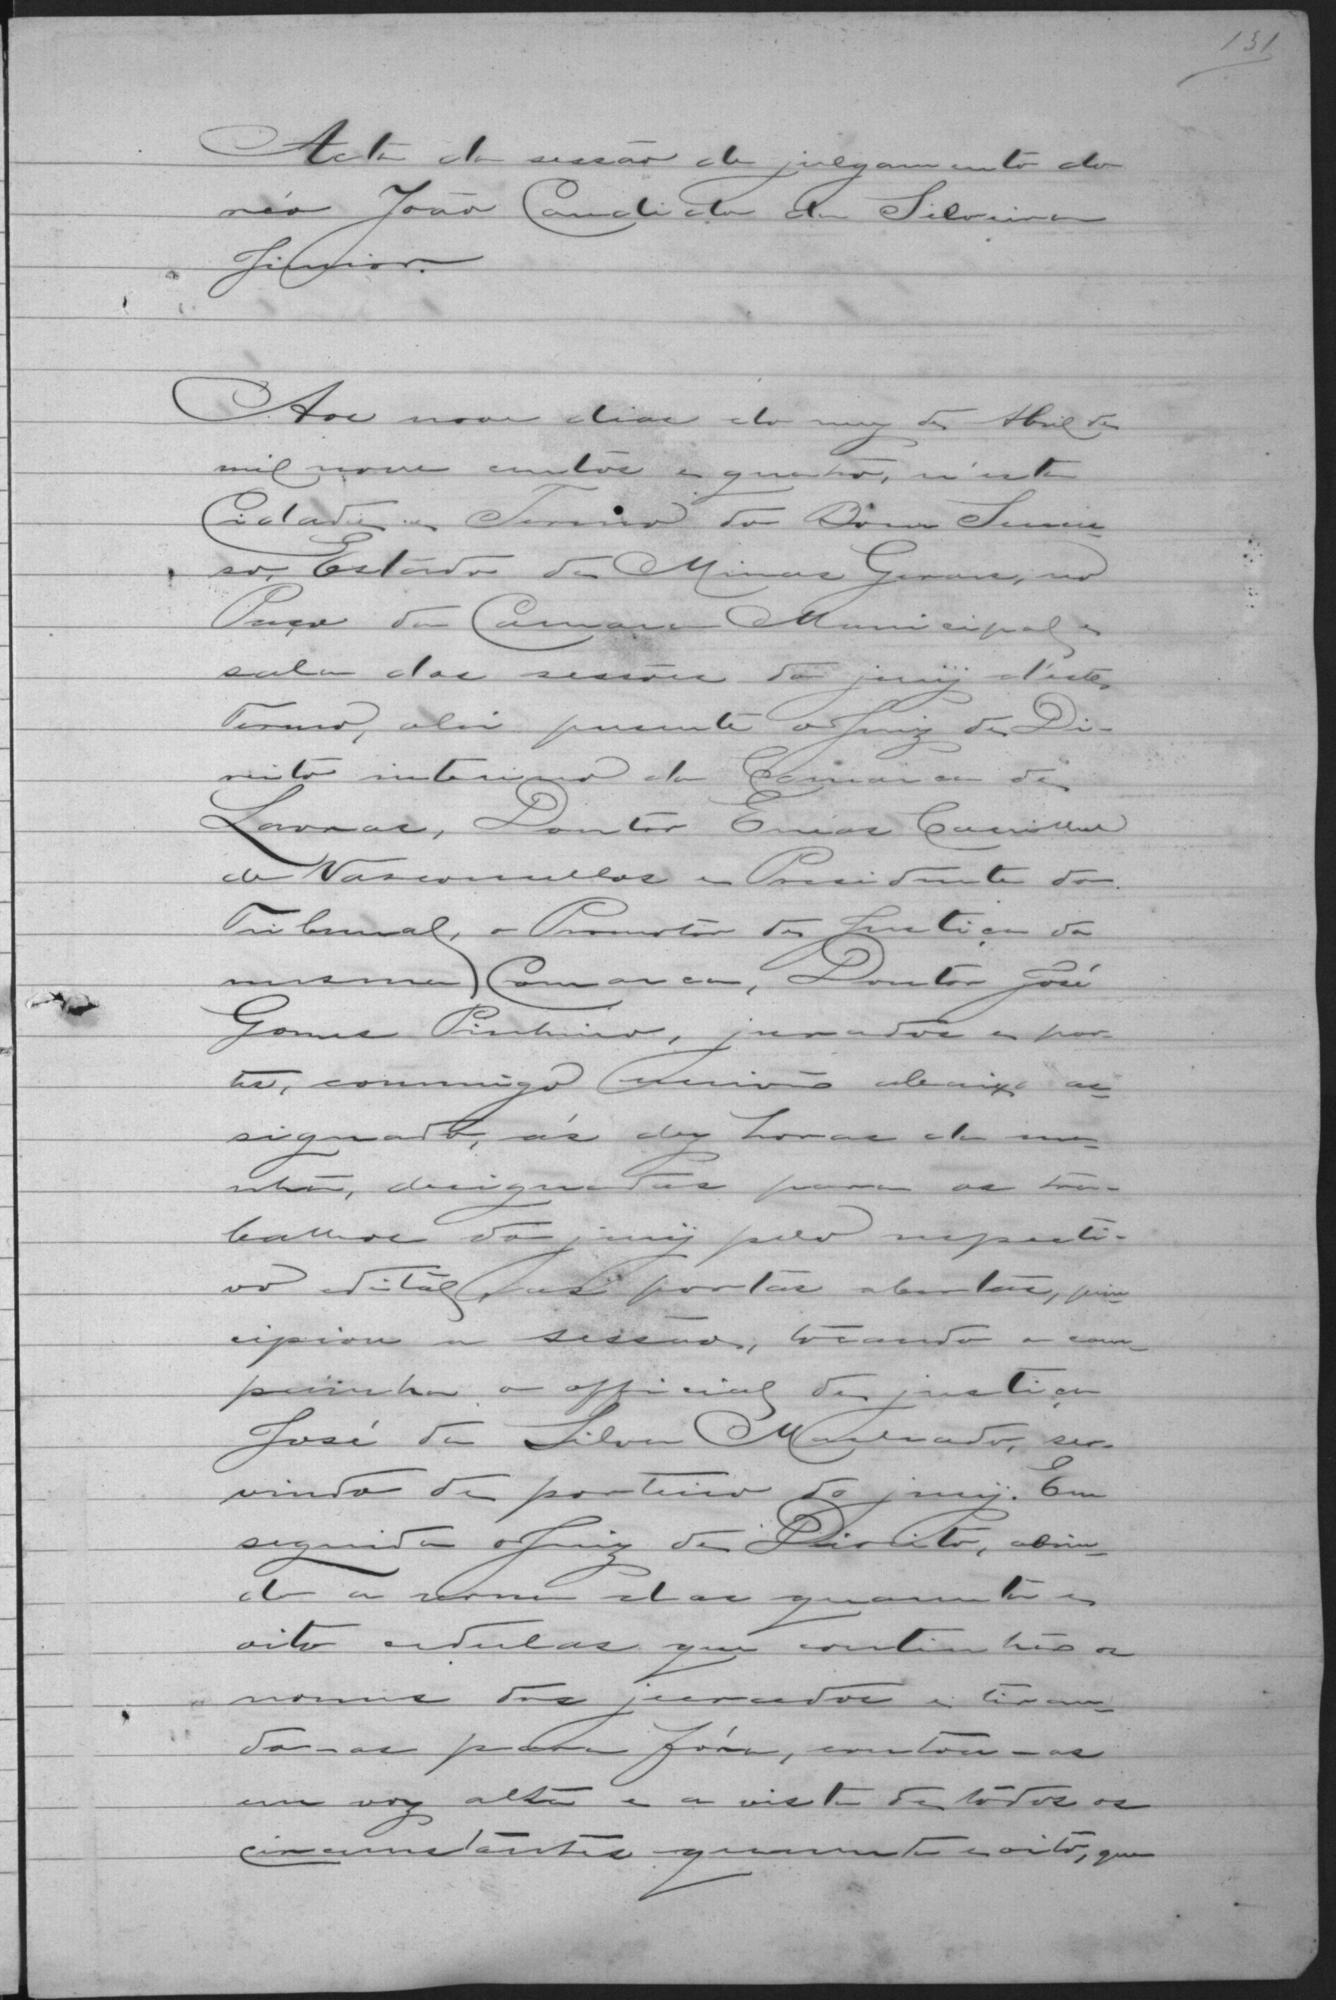 131
Acta da sessão de julgamento do
réo João Candido da Silveira
Junior.
Aos nove dias do mez de Abril de
mil nove centos e quatro, n'esta
Cidade e Termo do Bom Succes-
so, Estado de Minas Geraes, no
Paço da Camara Municipal e
sala das sessões do jury d'este
Termo, ahi presente o Juiz de Di-
reito interino da Comarca de
Lavras, Doutor Enéas Carrilho
de Vasconcellos e Presidente do
Tribunal, o Promotor de Justiça da
mesma Comarca, Doutor José
Gomes Pinheiro, jurados e par-
tes, commigo escrivão abaixo as-
signado, ás dez horas da ma-
nhã, designadas para os tra-
balhos do jury pelo respecti-
vo edital, as portas abertas, prin-
cipiou a sessão, tocando a cam-
painha o official de justiça
José da Silva Machado, ser-
vindo de porteiro do jury. Em
seguida o Juiz de Direito, abrin-
do a urna das quarenta e
oito cedulas que continhão os
nomes dos jurados e tiran-
do-as para fóra, contou-as
em voz alta e a vista de todos os
circumstantes quarenta e oito, que